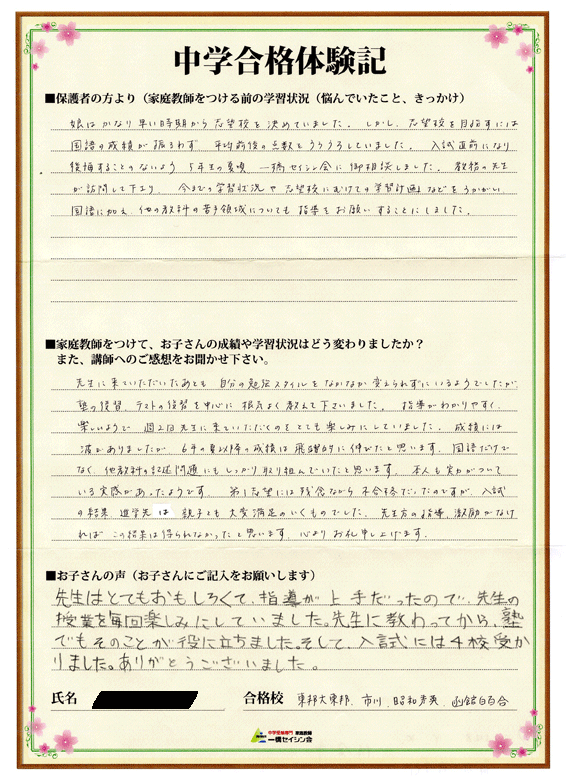 中学合格体験記
■保護者の方より（家庭教師をつける前の学習状況（悩んでいたこと、きっかけ）
娘はかなり早い時期から志望校を決めていました。しかし、志望校を目指すには
国語の成績が振るわず 平均前後の点数をうろうろしていました。 入試直前になり
後悔することのないよう、5年生の夏頃、一橋セイシン会に御相談しました。教務の先生
が訪問して下さり、今までの学習状況や志望校にむけての学習計画などをうかがい、
国語に加え、他の教科の苦手領域についても指導をお願いすることにしました。
■家庭教師をつけて、お子さんの成績や学習状況はどう変わりましたか？
また、講師へのご感想をお聞かせ下さい。
先生に来ていただいたあとも 自分の勉強スタイルをなかなか変えられずにいるようでしたが、
塾の復習、テストの復習を中心に 根気よく教えて下さいました。 指導がわかりやすく、
楽しいようで 週2回先生に来ていただくのをとても楽しみにしていました。成績には
波がありましたが、6年の夏以降の成績は飛躍的に伸びたと思います。国語だけで
なく、他教科の記述問題にもしっかり取り組んでいたと思います。本人も実力がついて
いる実感があったようです。 第1志望には残念ながら不合格だったのですが、入試
の結果、進学先は 親子とも大変満足のいくものでした。先生方の指導、激励がなけ
れば この結果は得られなかったと思います。心よりお礼申し上げます。
■お子さんの声（お子さんにご記入をお願いします）
先生はとてもおもしろくて、指導が上手だったので、先生の
授業を毎回楽しみにしていました。先生に教わってから、塾
でもそのことが役に立ちました。そして、入試には4校受か
りました。ありがとうございました。
氏名 合格校 東邦大東邦、市川、昭和秀英、函館白百合
中学受験専門 家庭教師
一橋セイシン会